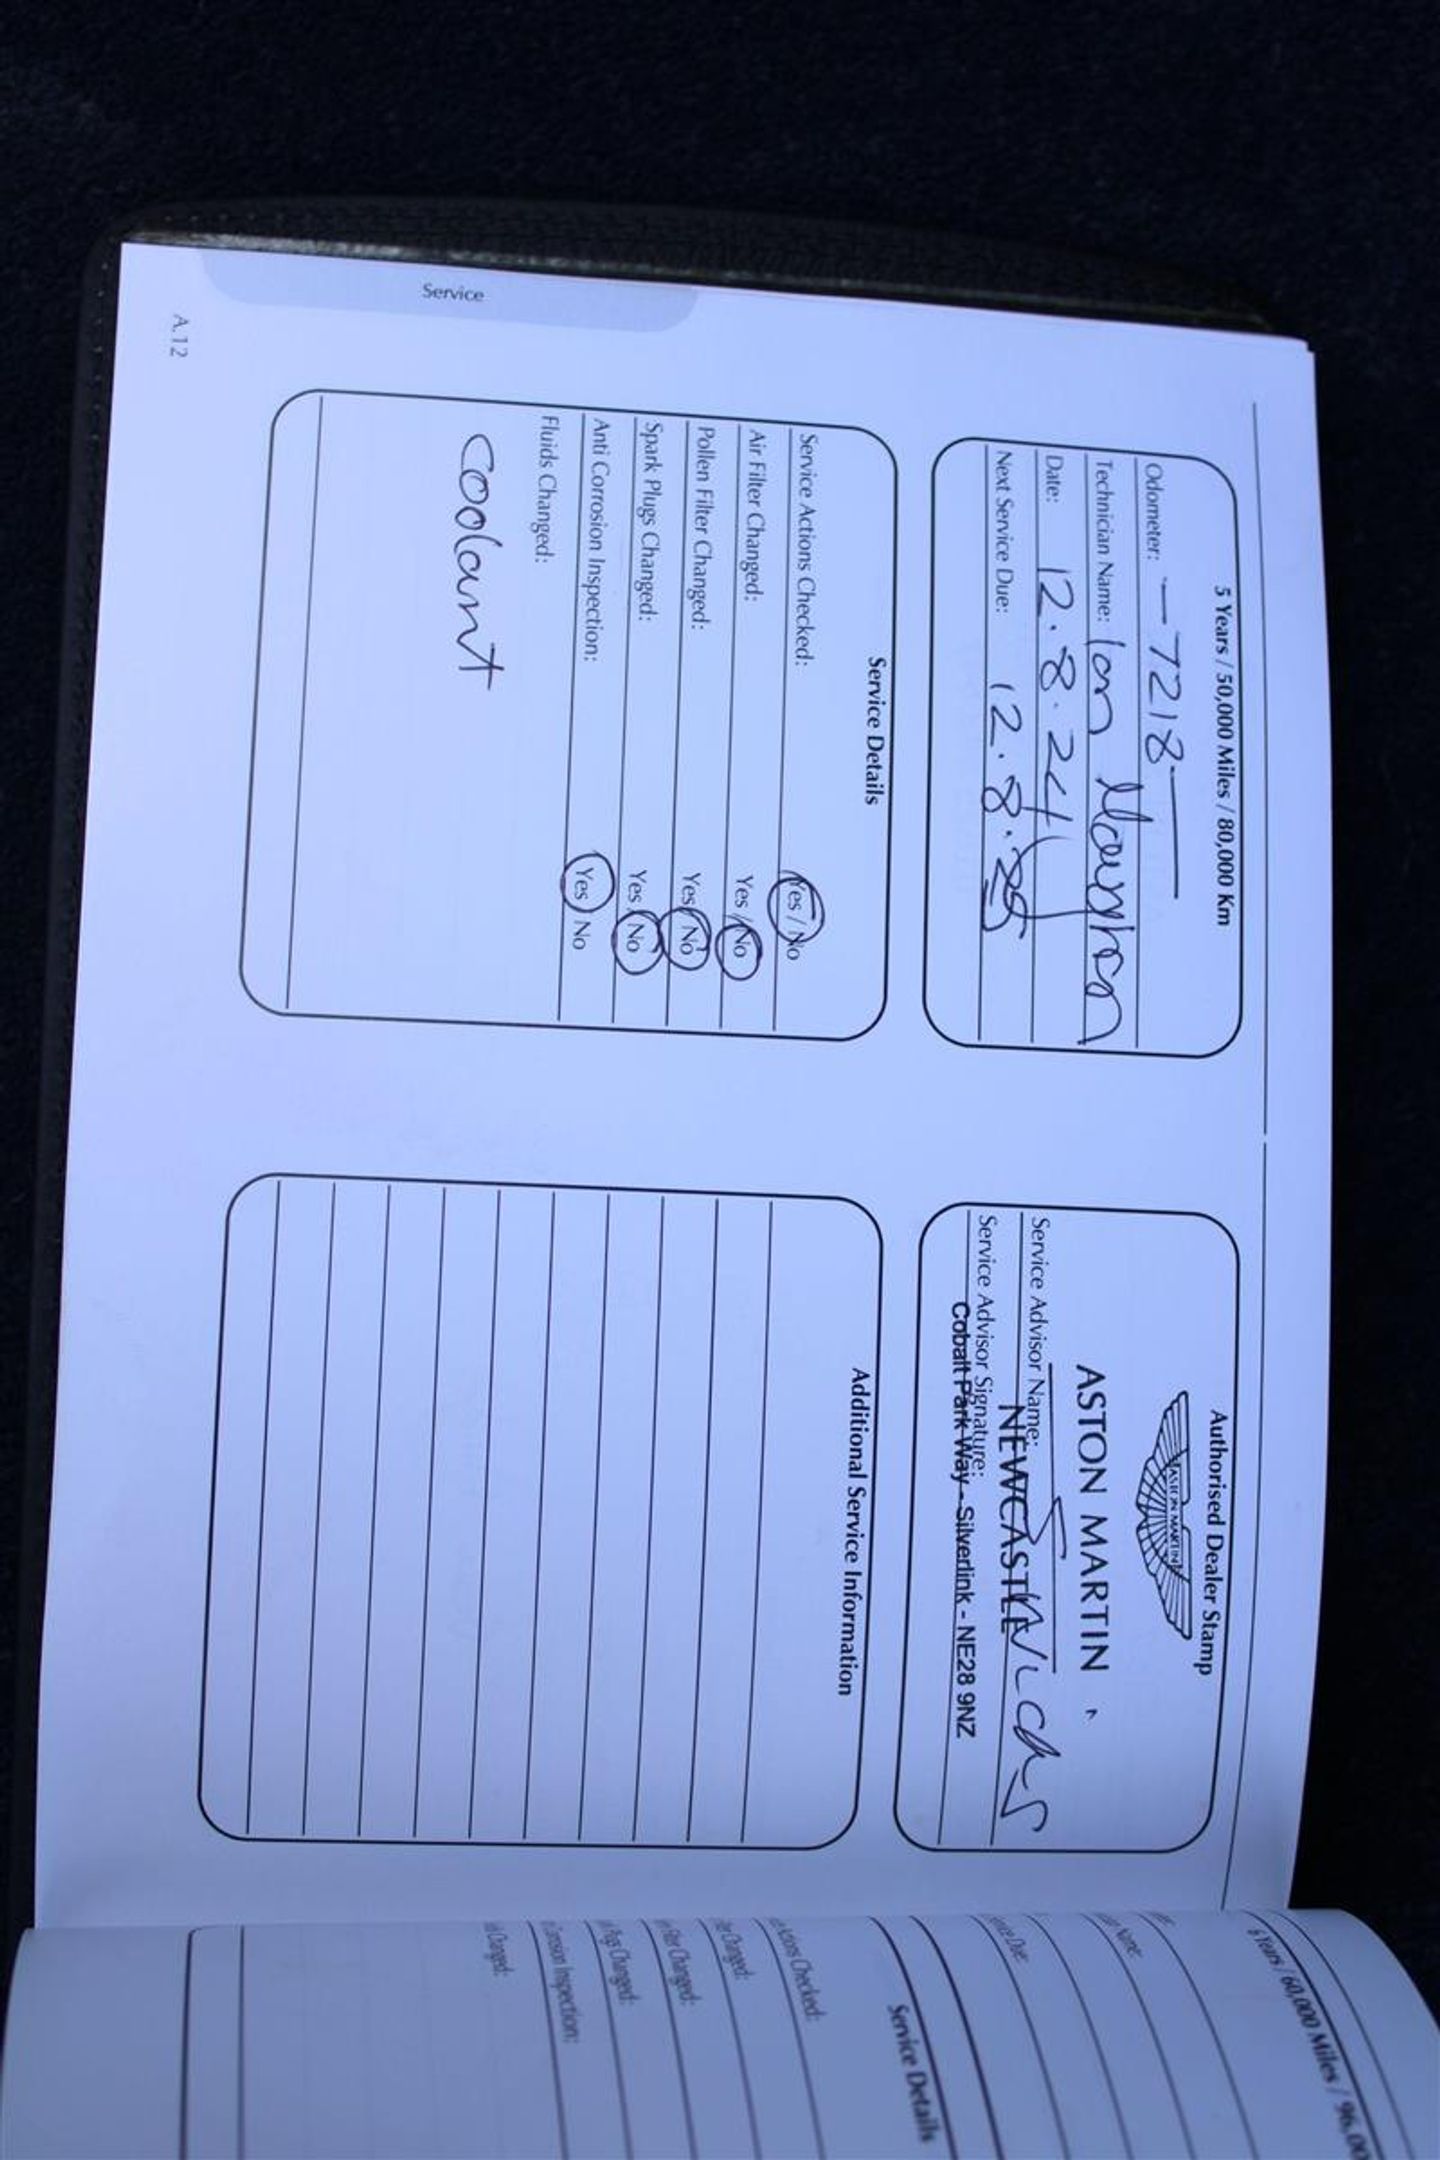 5 Years / 50,000 Miles / 80,000 Km
Odometer: — 7218 —
Technician Name: Ian
Date: 12.8.24
Next Service Due: 12.8.25
Service Details
Service Actions Checked: Yes / No
Air Filter Changed: Yes / No
Pollen Filter Changed: Yes / No
Spark Plugs Changed: Yes / No
Anti Corrosion Inspection: Yes / No
Fluids Changed:
coolant
Authorised Dealer Stamp
ASTON MARTIN
ASTON MARTIN
Service Advisor Name:
NEWCASTLE
Service Advisor Signature:
Cobalt Park Way - Silverlink - NE28 9NZ
Additional Service Information
Service
A.12
6 Years / 60,000 Miles / 96,00
Name:
Due:
Service Details
Actions Checked:
Changed:
Changed:
Changed:
Inspection:
Changed: